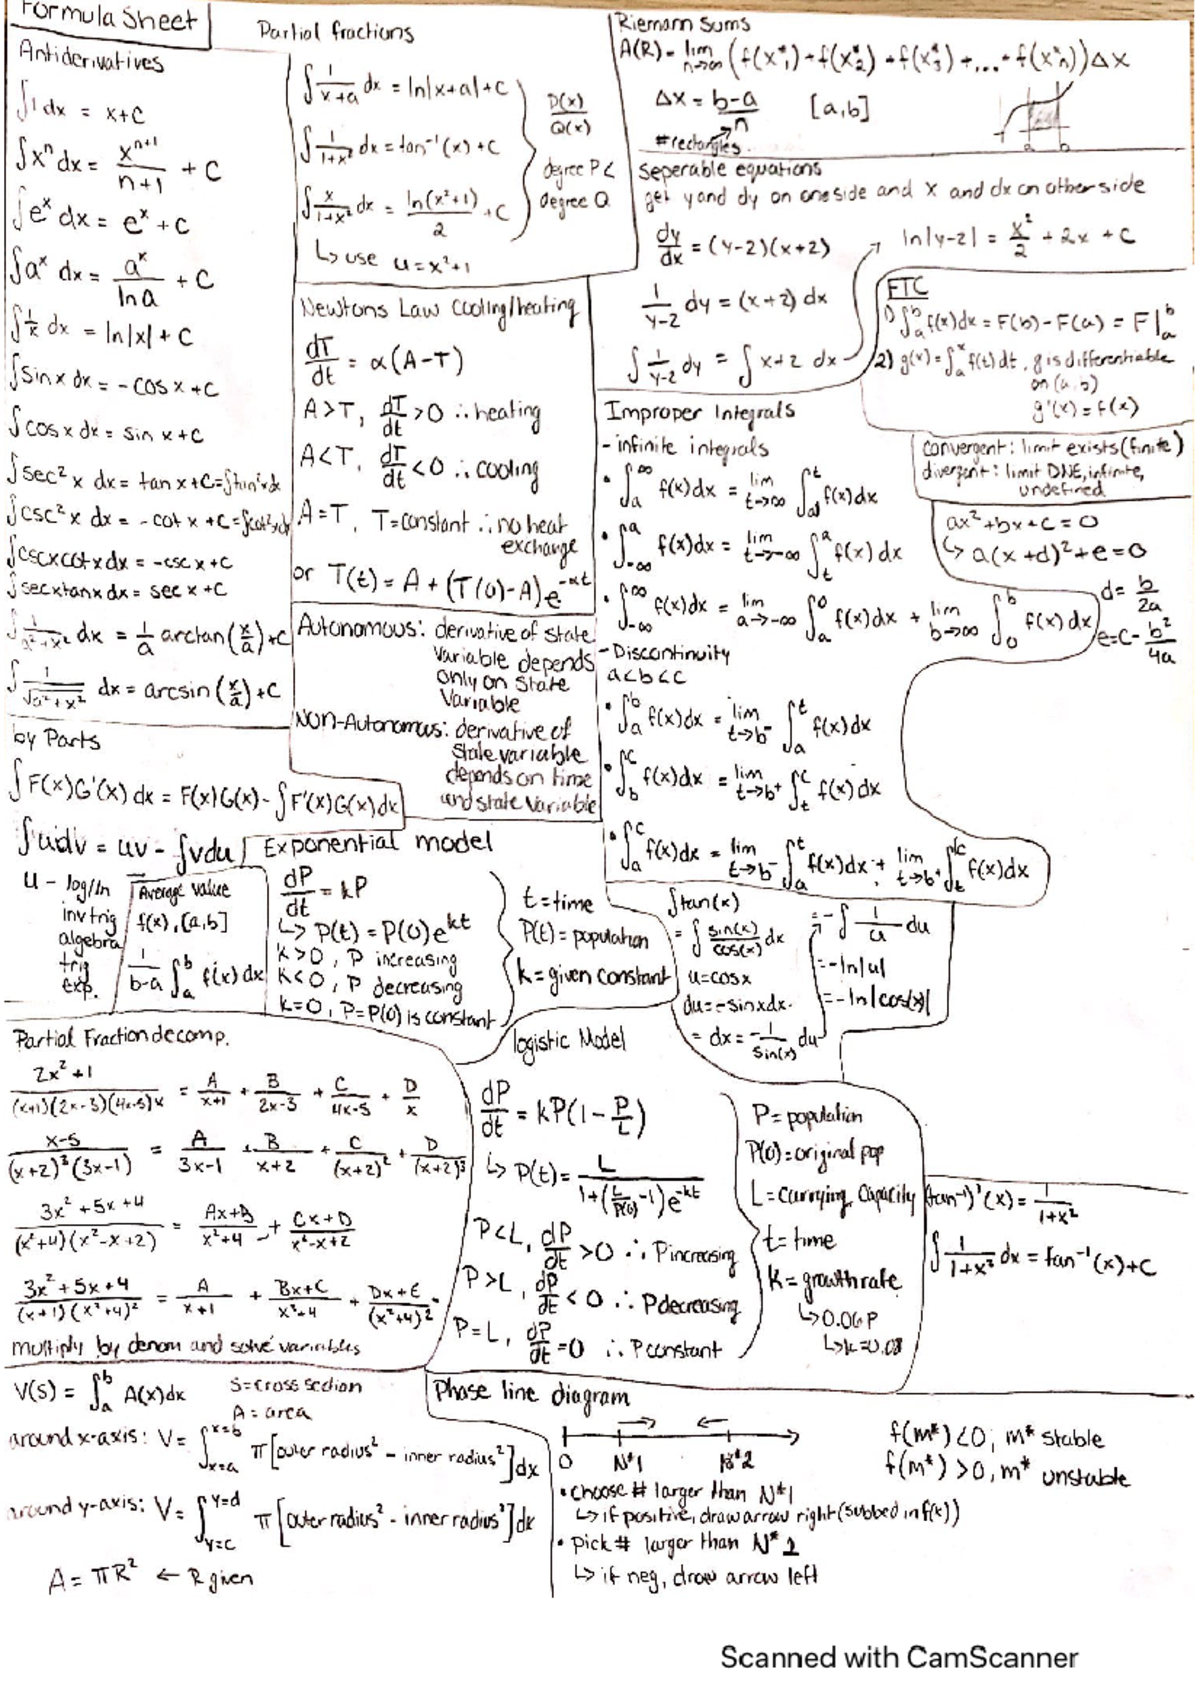 Formula Sheet
Antiderivatives
∫1 dx = x+C
∫xⁿ dx = xⁿ⁺¹/n+1 + C
∫eˣ dx = eˣ + C
∫aˣ dx = aˣ/ln a + C
∫1/x dx = ln|x| + C
∫sinx dx = -cos x + C
∫cosx dx = sin x + C
∫sec² x dx = tan x + C = ∫tan²x dx
∫csc² x dx = -cot x + C = ∫cot²x dx
∫cscxcotx dx = -csc x + C
∫secxtanx dx = sec x + C
∫1/a²+x² dx = 1/a arctan(x/a) + C
∫1/√a²+x² dx = arcsin(x/a) + C
by Parts
∫F(x)G'(x) dx = F(x)G(x) - ∫F'(x)G(x)dx
∫udv = uv - ∫vdu
u - log/ln
inv trig
algebra
trig
exp.
Average value
f(x), [a,b]
1/b-a ∫ₐᵇ f(x) dx
Partial fractions
∫1/x+a dx = ln|x+a| + C
∫1/1+x² dx = tan⁻¹(x) + C
∫x/1+x² dx = ln(x²+1)/2 + C
↳ use u = x²+1
P(x)/Q(x)
degree P <
degree Q
Newtons Law cooling/heating
dT/dt = α(A-T)
A>T, dT/dt >0 ∴ heating
A<T, dT/dt <0 ∴ cooling
A=T, T=constant ∴ no heat
exchange
or T(t) = A + (T(0)-A)e^-αt
Autonomous: derivative of state
variable depends
only on state
variable
Non-Autonomous: derivative of
state variable
depends on time
and state variable
Exponential model
dP/dt = kP
↳ P(t) = P(0)e^kt
k>0, P increasing
k<0, P decreasing
k=0, P=P(0) is constant
t=time
P(t)=population
k=given constant
Riemann Sums
A(R) = lim n→∞ (f(x*₁) + f(x*₂) + f(x*₃) + ... + f(x*ₙ))Δx
Δx = b-a/n [a,b]
#rectangles
a b
seperable equations
get y and dy on one side and x and dx on other side
dy/dx = (y-2)(x+2)
1/y-2 dy = (x+2) dx
∫1/y-2 dy = ∫x+2 dx
ln|y-2| = x²/2 + 2x + C
FTC
1) ∫ₐᵇ f(x)dx = F(b) - F(a) = F|ₐᵇ
2) g(x) = ∫ₐˣ f(t) dt, g is differentiable
on (a,b)
g'(x) = f(x)
Improper Integrals
- infinite integrals
• ∫ₐ^∞ f(x)dx = lim t→∞ ∫ₐᵗ f(x)dx
• ∫₋∞^a f(x)dx = lim t→-∞ ∫ₜᵃ f(x) dx
• ∫₋∞^∞ f(x)dx = lim a→-∞ ∫ₐ⁰ f(x)dx + lim b→∞ ∫₀ᵇ f(x) dx
convergent: limit exists (finite)
divergent: limit DNE, infinite,
undefined
ax²+bx+c = 0
↳ a(x+d)²+e=0
d = b/2a
e = c - b²/4a
- Discontinuity
a<b<c
• ∫ₐᵇ f(x)dx = lim t→b⁻ ∫ₐᵗ f(x)dx
• ∫_b^c f(x)dx = lim t→b⁺ ∫ₜᶜ f(x)dx
• ∫ₐᶜ f(x)dx = lim t→b⁻ ∫ₐᵗ f(x)dx + lim t→b⁺ ∫ₜᶜ f(x)dx
∫tan(x)
= ∫sin(x)/cos(x) dx
u=cosx
du=-sinxdx
= dx = -1/sin(x) du
= -∫1/u du
= -ln|u|
= -ln|cos(x)|
Partial Fraction decomp.
2x²+1/(x+1)(2x-3)(4x-5)x = A/x+1 + B/2x-3 + C/4x-5 + D/x
x-5/(x+2)³(3x-1) = A/3x-1 + B/x+2 + C/(x+2)² + D/(x+2)³
3x²+5x+4/(x²+4)(x²-x+2) = Ax+B/x²+4 + Cx+D/x²-x+2
3x²+5x+4/(x+1)(x²+4)² = A/x+1 + Bx+C/x²+4 + Dx+E/(x²+4)²
multiply by denom and solve variables
logistic Model
dP/dt = kP(1 - P/L)
↳ P(t) = L/1+(L/P(0) -1)e^-kt
P<L, dP/dt >0 ∴ P increasing
P>L, dP/dt <0 ∴ P decreasing
P=L, dP/dt =0 ∴ P constant
P=population
P(0)=original pop
L=carrying capacity
t=time
k=growth rate
↳0.06P
↳k=0.08
(tan⁻¹)'(x) = 1/1+x²
∫1/1+x² dx = tan⁻¹(x)+C
V(s) = ∫ₐᵇ A(x)dx
S=cross section
A=area
around x-axis: V = ∫x=a^x=b π[outer radius² - inner radius²]dx
around y-axis: V = ∫y=c^y=d π[outer radius² - inner radius²]dx
A = πR² ← R given
Phase line diagram
0 N*1 N*2
• choose # larger than N*1
↳ if positive, draw arrow right (subbed in f(x))
• pick # larger than N*2
↳ if neg, draw arrow left
f(m*) <0, m* stable
f(m*) >0, m* unstable
Scanned with CamScanner